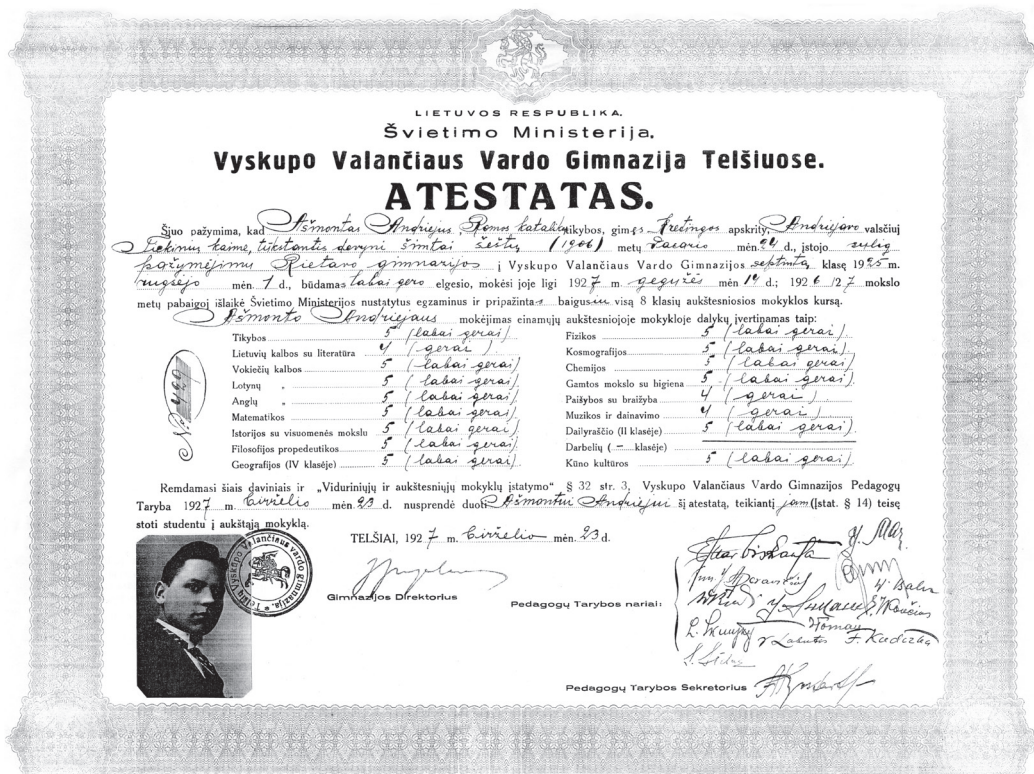 LIETUVOS RESPUBLIKA.
Švietimo Ministerija.
Vyskupo Valančiaus Vardo Gimnazija Telšiuose.
ATESTATAS.
Šiuo pažymima, kad Ašmontas Andriejus, Romos katalikų tikybos, gimęs Kretingos apskrity, Andriejavo valsčiuj
kaime, tūkstantis devyni šimtai šeštų (1906) metų vasario mėn. 24 d., įstojo sulig
pažymėjimu Rietavo gimnazijos į Vyskupo Valančiaus Vardo Gimnazijos septintą klasę 1925 m.
rugsėjo mėn. 1 d., būdamas labai gero elgesio, mokėsi joje ligi 1927 m. gegužės mėn. d.; 1926/27 mokslo
metų pabaigoj išlaikė Švietimo Ministerijos nustatytus egzaminus ir pripažintas baigusiu visą 8 klasių aukštesniosios mokyklos kursą.
Ašmonto Andriejaus mokėjimas einamųjų aukštesniojoje mokykloje dalykų įvertinamas taip:
Tikybos 5 (labai gerai)
Lietuvių kalbos su literatūra 4 (gerai)
Vokiečių kalbos 5 (labai gerai)
Lotynų „ 5 (labai gerai)
Anglų „ 5 (labai gerai)
Matematikos 5 (labai gerai)
Istorijos su visuomenės mokslu 5 (labai gerai)
Filosofijos propedeutikos 5 (labai gerai)
Geografijos (IV klasėje) 5 (labai gerai)
Fizikos 5 (labai gerai)
Kosmografijos 5 (labai gerai)
Chemijos 5 (labai gerai)
Gamtos mokslo su higiena 5 (labai gerai)
Paišybos su braižyba 4 (gerai)
Muzikos ir dainavimo 4 (gerai)
Dailyraščio (II klasėje) 5 (labai gerai)
Darbelių (– klasėje)
Kūno kultūros 5 (labai gerai)
Remdamasi šiais daviniais ir „Viduriniųjų ir aukštesniųjų mokyklų įstatymo" § 32 str. 3, Vyskupo Valančiaus Vardo Gimnazijos Pedagogų
Taryba 1927 m. birželio mėn. 23 d. nusprendė duoti Ašmontui Andriejui šį atestatą, teikiantį jam (Įstat. § 14) teisę
stoti studentu į aukštąją mokyklą.
TELŠIAI, 1927 m. birželio mėn. 23 d.
Gimnazijos Direktorius
Pedagogų Tarybos nariai:
Pedagogų Tarybos Sekretorius
Telšių Vyskupo Valančiaus vardo gimnazija